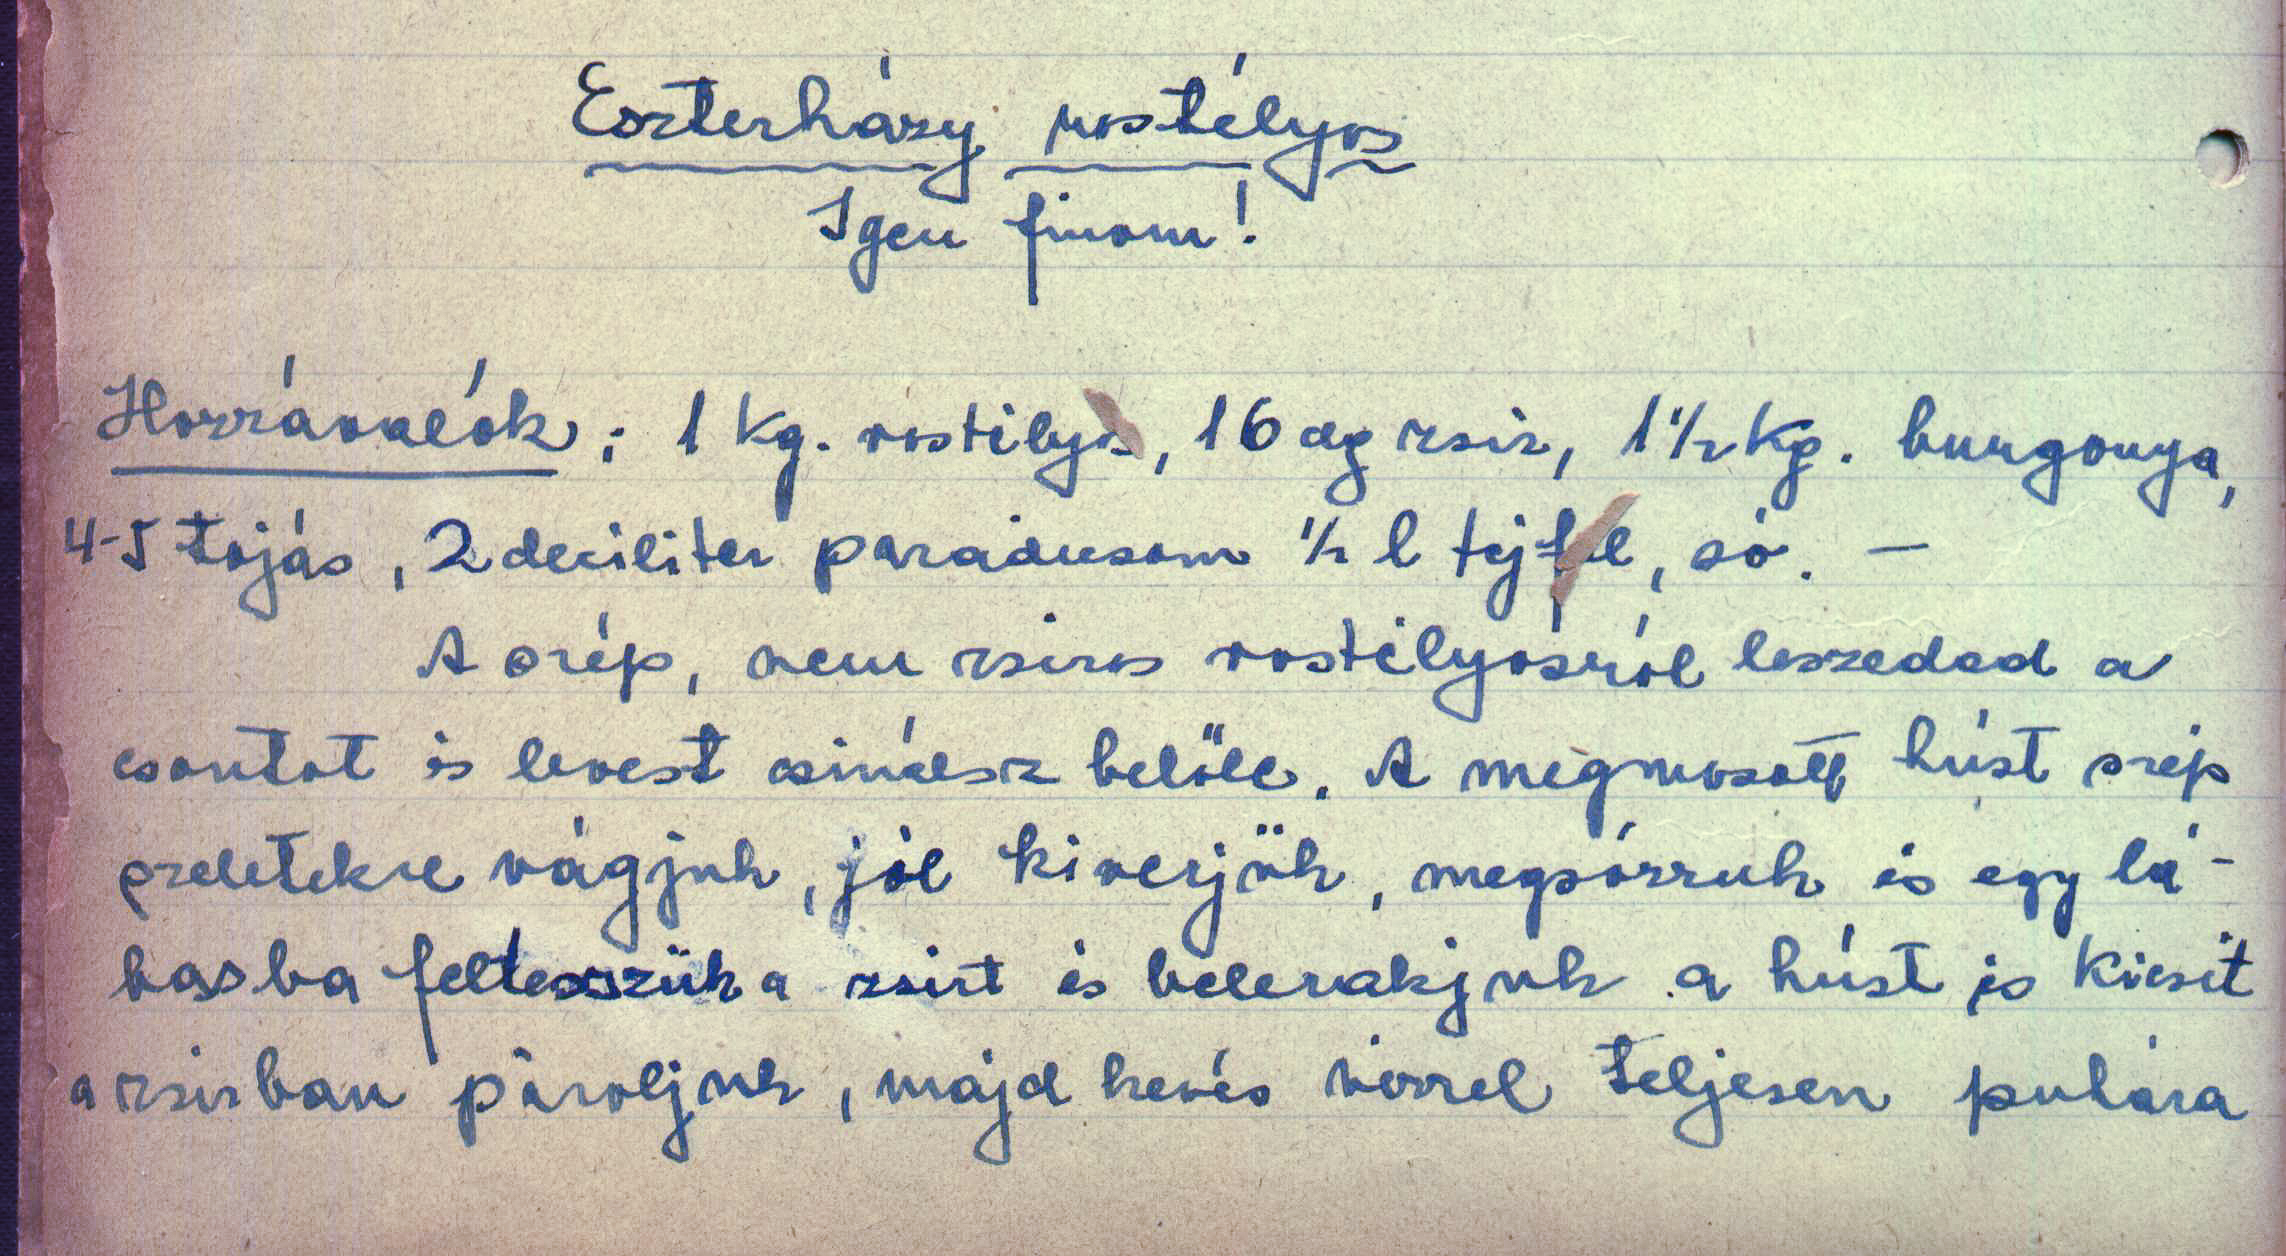 Eszterházy rostélyos
Igen finom!
Hozzávalók: 1 kg. rostélyos, 16 dkg zsir, 1 1/2 kg. burgonya,
4-5 tojás, 2 deciliter paradicsom 1/2 l tejfel, só. –
A szép, nem zsiros rostélyosról leszeded a
csontot és levest csinálsz belőle. A megmosott húst szép
szeletekre vágjuk, jól kiverjük, megsózzuk és egy lá-
basba feltesszük a zsirt és belerakjuk a húst is kicsit
a zsirban pároljuk, majd kevés vizzel teljesen puhára